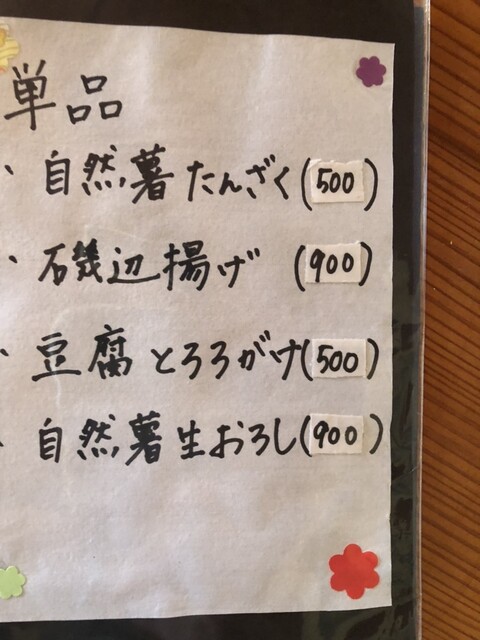 単品
・自然薯たんざく(500)
・磯辺揚げ (900)
・豆腐とろろがけ(500)
・自然薯生おろし(900)